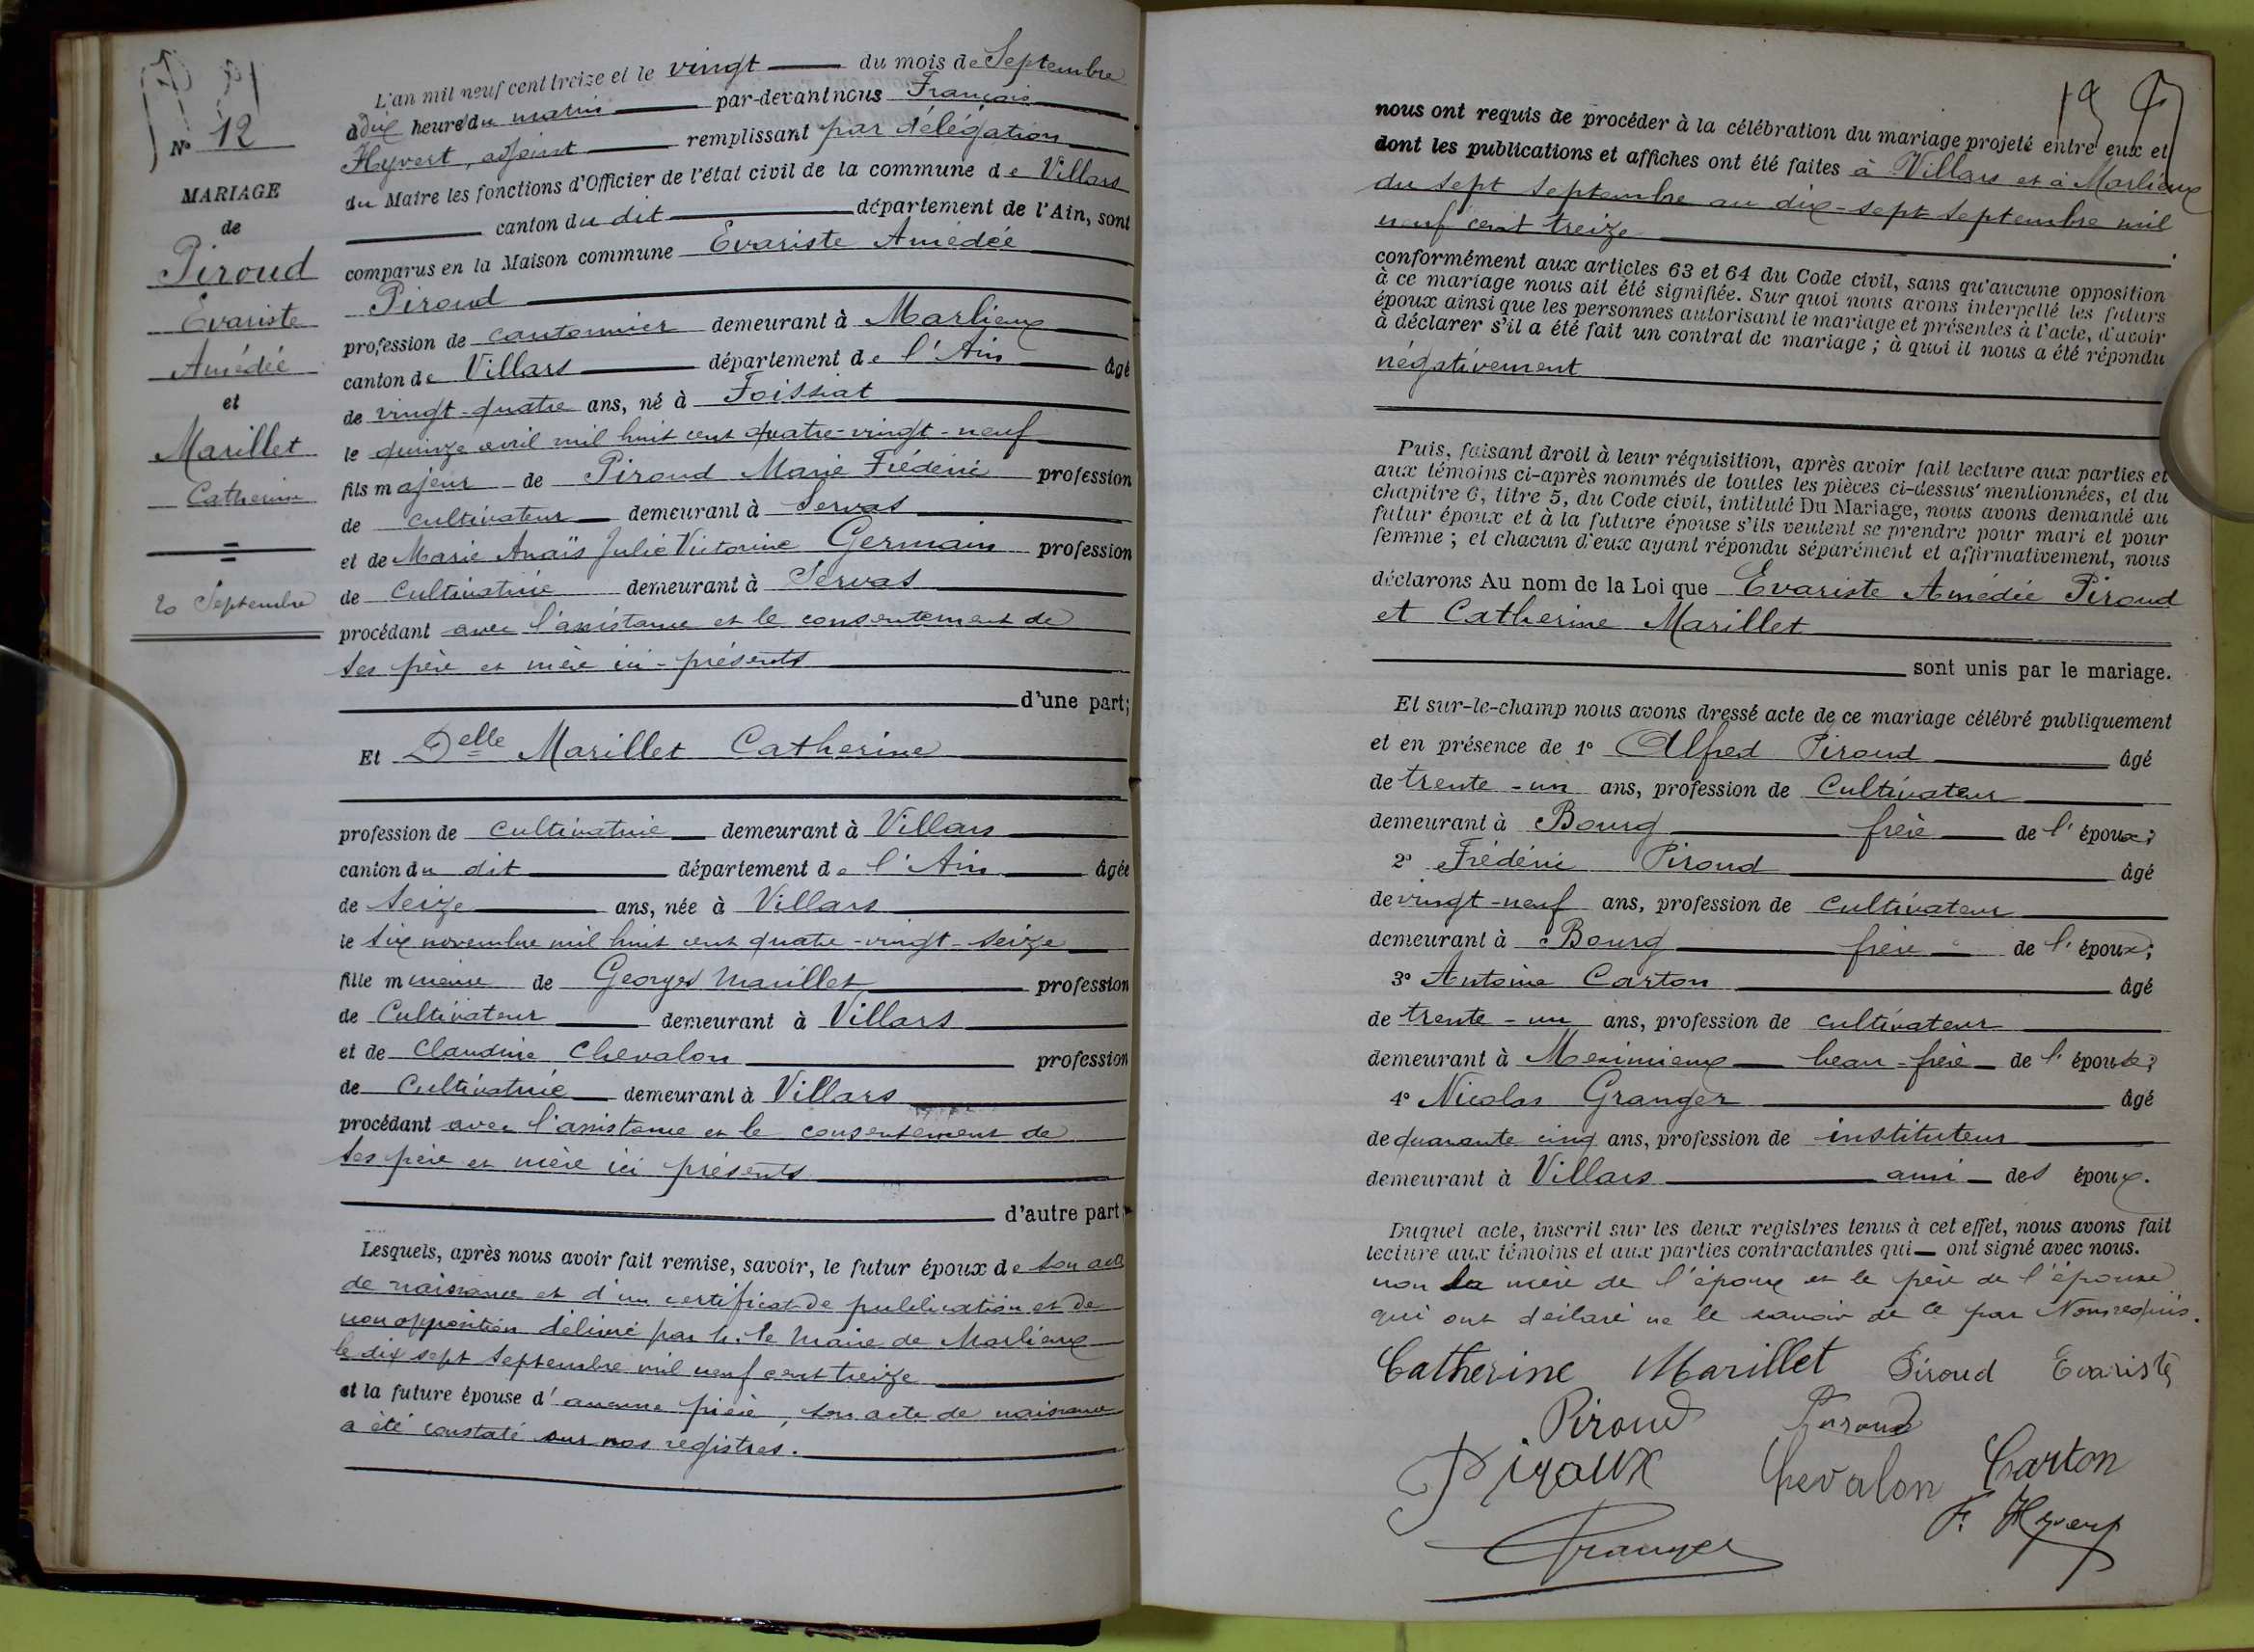 Nº 12
MARIAGE
de
Piroud
Evariste
Amédée
et
Marillet
Catherine
20 Septembre
L'an mil neuf cent treize et le vingt du mois de Septembre
à dix heures du matin par-devant nous François
Hyvert, adjoint remplissant par délégation
du Maire les fonctions d'Officier de l'état civil de la commune de Villars
canton du dit département de l'Ain, sont
comparus en la Maison commune Evariste Amédée
Piroud
profession de cantonnier demeurant à Marlieux
canton de Villars département de l'Ain âgé
de vingt-quatre ans, né à Foissiat
le quinze avril mil huit cent quatre-vingt-neuf
fils majeur de Piroud Marie Frédéric profession
de cultivateur demeurant à Servas
et de Marie Anaïs Julie Victorine Germain profession
de Cultivatrice demeurant à Servas
procédant avec l'assistance et le consentement de
ses père et mère ici-présents
d'une part;
Et Delle Marillet Catherine
profession de cultivatrice demeurant à Villars
canton du dit département de l'Ain âgée
de seize ans, née à Villars
le six novembre mil huit cent quatre-vingt-seize
fille mineure de Georges Marillet profession
de Cultivateur demeurant à Villars
et de Claudine Chevalon profession
de Cultivatrice demeurant à Villars
procédant avec l'assistance et le consentement de
ses père et mère ici présents
d'autre part
Lesquels, après nous avoir fait remise, savoir, le futur époux de son acte
de naissance et d'un certificat de publication et de
non opposition délivré par le Maire de Marlieux
le dix sept septembre mil neuf cent treize
et la future épouse d'aucune pièce, son acte de naissance
a été constaté sur nos registres.
19
nous ont requis de procéder à la célébration du mariage projeté entre eux et
dont les publications et affiches ont été faites à Villars et à Marlieux
du sept septembre au dix-sept septembre mil
neuf cent treize
conformément aux articles 63 et 64 du Code civil, sans qu'aucune opposition
à ce mariage nous ait été signifiée. Sur quoi nous avons interpellé les futurs
époux ainsi que les personnes autorisant le mariage et présentes à l'acte, d'avoir
à déclarer s'il a été fait un contrat de mariage ; à quoi il nous a été répondu
négativement
Puis, faisant droit à leur réquisition, après avoir fait lecture aux parties et
aux témoins ci-après nommés de toutes les pièces ci-dessus mentionnées, et du
chapitre 6, titre 5, du Code civil, intitulé Du Mariage, nous avons demandé au
futur époux et à la future épouse s'ils veulent se prendre pour mari et pour
femme ; et chacun d'eux ayant répondu séparément et affirmativement, nous
déclarons Au nom de la Loi que Evariste Amédée Piroud
et Catherine Marillet
sont unis par le mariage.
Et sur-le-champ nous avons dressé acte de ce mariage célébré publiquement
et en présence de 1º Alfred Piroud âgé
de trente-un ans, profession de Cultivateur
demeurant à Bourg frère de l'époux;
2º Frédéric Piroud âgé
de vingt-neuf ans, profession de cultivateur
demeurant à Bourg frère de l'époux;
3º Antoine Carton âgé
de trente-un ans, profession de cultivateur
demeurant à Meximieux beau-frère de l'épouse;
4º Nicolas Granger âgé
de quarante cinq ans, profession de instituteur
demeurant à Villars ami des époux.
Duquel acte, inscrit sur les deux registres tenus à cet effet, nous avons fait
lecture aux témoins et aux parties contractantes qui ont signé avec nous.
non la mère de l'époux et le père de l'épouse
qui ont déclaré ne le savoir de ce par Nous requis.
Catherine Marillet Piroud Evariste
Piroud Piroud
Piroux Chevalon Carton
Granger F. Hyvert